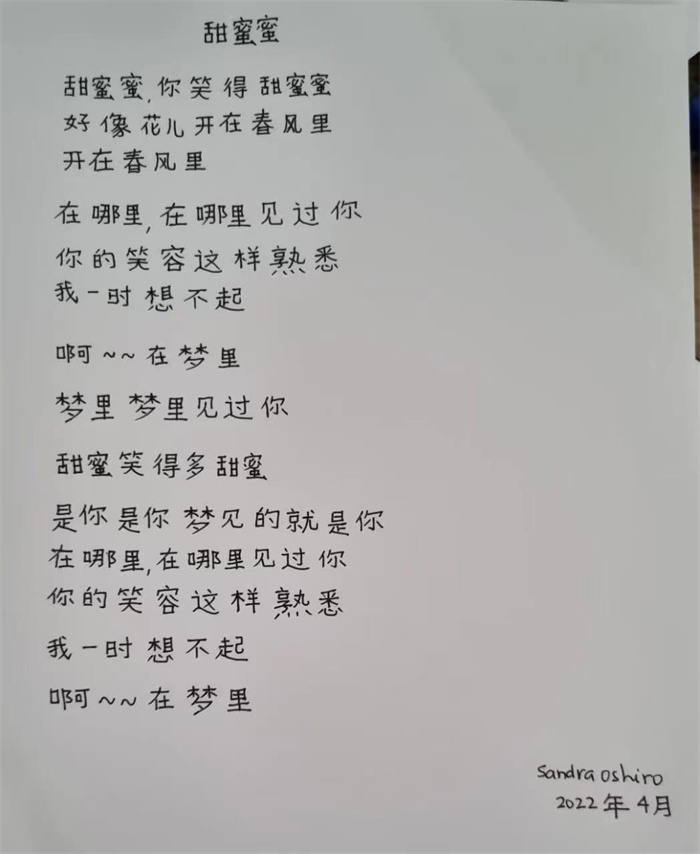 甜蜜蜜
甜蜜蜜,你笑得甜蜜蜜
好像花儿开在春风里
开在春风里
在哪里,在哪里见过你
你的笑容这样熟悉
我一时想不起
啊~~在梦里
梦里梦里见过你
甜蜜笑得多甜蜜
是你是你梦见的就是你
在哪里,在哪里见过你
你的笑容这样熟悉
我一时想不起
啊~~在梦里
Sandra oshiro
2022年4月